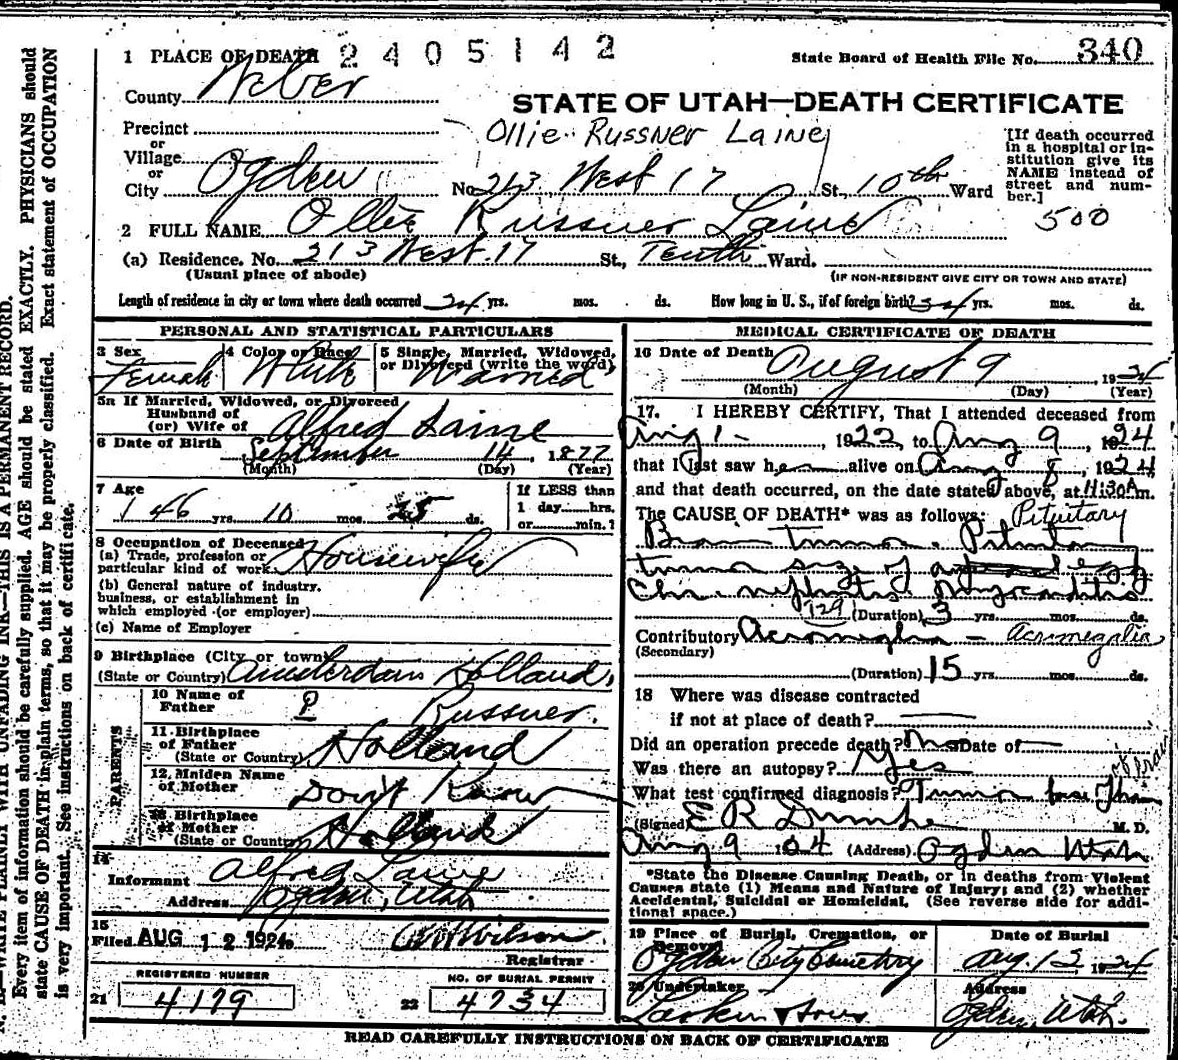 1 PLACE OF DEATH 2405142
State Board of Health File No. 340
County Weber
STATE OF UTAH—DEATH CERTIFICATE
Precinct
or
Village
or
City Ogden
Ollie Russner Laine
No. 213 West 17 St., 10th Ward
[If death occurred
in a hospital or in-
stitution give its
NAME instead of
street and num-
ber.]
500
2 FULL NAME Ollie Russner Laine
(a) Residence. No. 213 West 17 St., Tenth Ward.
(Usual place of abode)
(IF NON-RESIDENT GIVE CITY OR TOWN AND STATE)
Length of residence in city or town where death occurred 24 yrs. mos. ds. How long in U. S., if of foreign birth? 34 yrs. mos. ds.
PERSONAL AND STATISTICAL PARTICULARS
3 Sex
Female
4 Color or Race
White
5 Single, Married, Widowed,
or Divorced (write the word)
Married
5a If Married, Widowed, or Divorced
Husband of
(or) Wife of Alfred Laine
6 Date of Birth September 14, 1877
(Month) (Day) (Year)
7 Age
46 yrs. 10 mos. 25 ds.
If LESS than
1 day hrs.
or min.?
8 Occupation of Deceased
(a) Trade, profession or
particular kind of work Housewife
(b) General nature of industry,
business, or establishment in
which employed (or employer)
(c) Name of Employer
9 Birthplace (City or town)
(State or Country) Amsterdam Holland.
PARENTS
10 Name of
Father P Russner.
11. Birthplace
of Father
(State or Country) Holland
12. Maiden Name
of Mother Don't Know
13 Birthplace
of Mother
(State or Country) Holland
14
Informant Alfred Laine
Address Ogden, Utah
15
Filed AUG 12 1924 Wilson
Registrar
REGISTERED NUMBER
21 4179
NO. OF BURIAL PERMIT
22 4734
MEDICAL CERTIFICATE OF DEATH
16 Date of Death August 9, 1924
(Month) (Day) (Year)
17. I HEREBY CERTIFY, That I attended deceased from
Aug 1 -, 1922, to Aug 9 1924
that I last saw her alive on Aug 8, 1924
and that death occurred, on the date stated above, at 11:30 A m.
The CAUSE OF DEATH* was as follows: Pituitary
Brain Tumor. Pituitary
tumor size of egg
Chr. nephritis Myocarditis
129 (Duration) 3 yrs. mos. ds.
Contributory Acromeglia - Acromegalia
(Secondary)
(Duration) 15 yrs. mos. ds.
18 Where was disease contracted
if not at place of death?
Did an operation precede death? No Date of
Was there an autopsy? Yes
What test confirmed diagnosis? Tumor base of brain
(Signed) E R Dumke M. D.
Aug 9 1924 (Address) Ogden Utah
*State the Disease Causing Death, or in deaths from Violent
Causes state (1) Means and Nature of Injury; and (2) whether
Accidental, Suicidal or Homicidal. (See reverse side for addi-
tional space.)
19 Place of Burial, Cremation, or
Removal
Ogden City Cemetery
Date of Burial
Aug. 12 1924
20 Undertaker
Larkin & Sons
Address
Ogden, Utah.
READ CAREFULLY INSTRUCTIONS ON BACK OF CERTIFICATE
WRITE PLAINLY WITH UNFADING INK—THIS IS A PERMANENT RECORD.
Every item of information should be carefully supplied. AGE should be stated EXACTLY. PHYSICIANS should
state CAUSE OF DEATH in plain terms, so that it may be properly classified. Exact statement of OCCUPATION
is very important. See instructions on back of certificate.